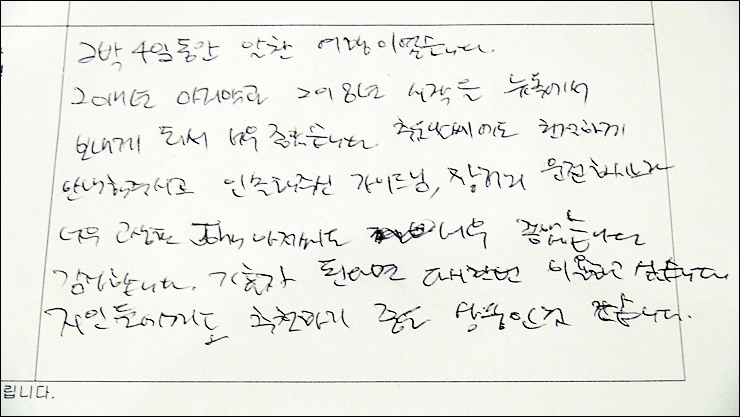 2박 4일동안 알찬 여행이였습니다.
2017년 마지막과 2018년 시작을 뉴욕에서
보내게 되서 너무 좋았습니다. 추운날씨에도 친절하게
안내해주시고 인솔해주신 가이드님, 장거리 운전하시느라
너무 고생한 아저씨도 너무 좋았습니다
감사합니다. 기회가 된다면 다시한번 이용하고 싶습니다.
지인들에게도 추천하기 좋은 상품인것 같습니다.
립니다.